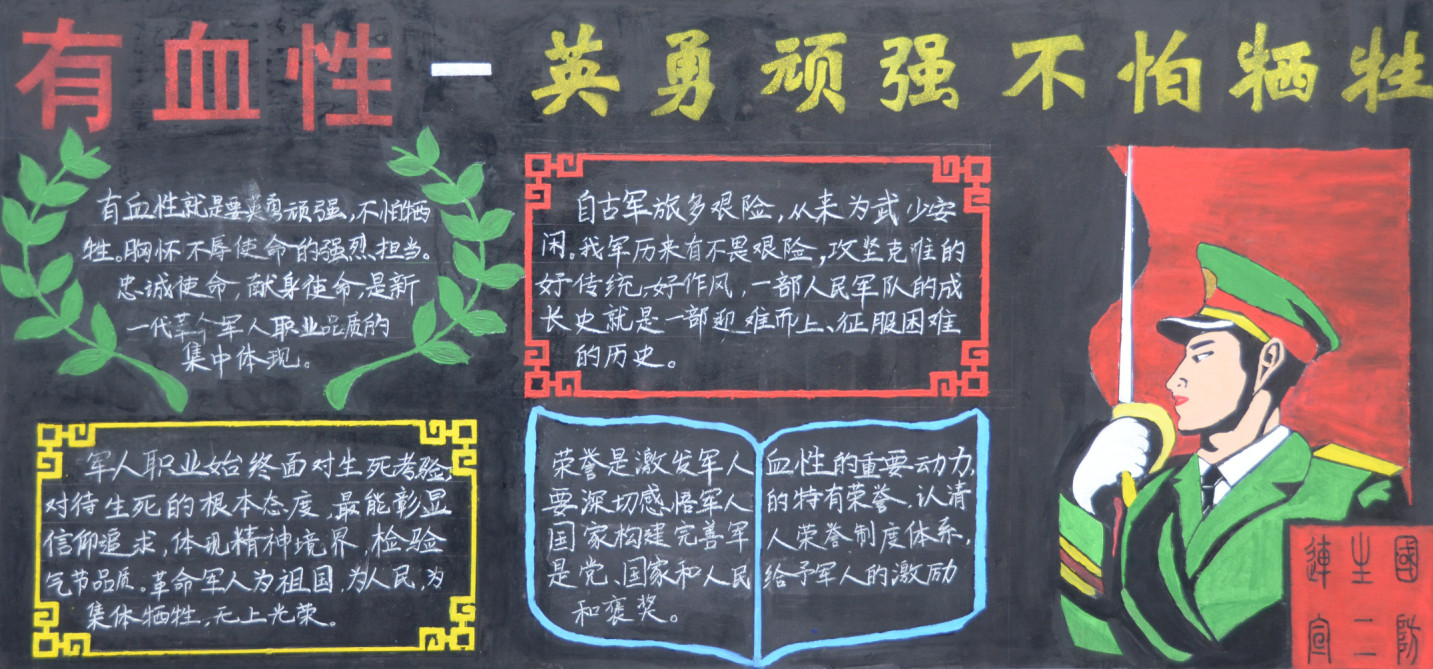 有血性-英勇顽强不怕牺牲
有血性就是要英勇顽强,不怕牺
牲。胸怀不辱使命的强烈担当。
忠诚使命,献身使命,是新
一代革命军人职业品质的
集中体现。
自古军旅多艰险,从来为武少安
闲。我军历来有不畏艰险,攻坚克难的
好传统、好作风,一部人民军队的成
长史就是一部迎难而上、征服困难
的历史。
军人职业始终面对生死考验,
对待生死的根本态度,最能彰显
信仰追求,体现精神境界,检验
气节品质。革命军人为祖国、为人民、为
集体牺牲,无上光荣。
荣誉是激发军人血性的重要动力,
要深切感悟军人的特有荣誉、认清
国家构建完善军人荣誉制度体系,
是党、国家和人民给予军人的激励
和褒奖。
國防
生二
連宣